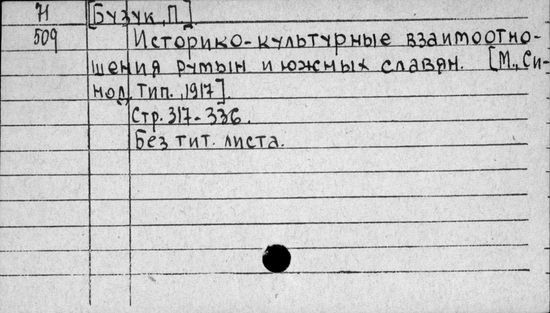 Н [Бузук, П.]
509 Историко-культурные взаимоотно-
шения румын и южных славян. [М., Си-
нод. тип., 1917].
Стр. 317-336.
Без тит. листа.